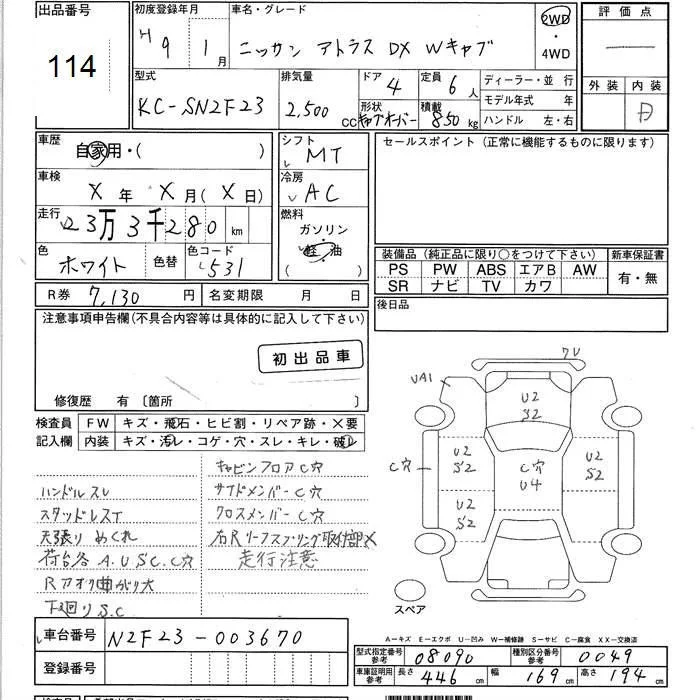 出品番号
114
初度登録年月
H 9 年 1 月
車名・グレード
ニッサン アトラス DX Wキャブ
2WD
・
4WD
評価点
外装 内装
D
型式
KC-SN2F23
排気量
2,500 CC
ドア 4
形状
キャブオーバー
定員 6 人
積載 850 kg
ディーラー・並 行
モデル年式 年
ハンドル 左・右
車歴
自家用・( )
車検
X 年 X 月 ( X 日)
走行
23万3千280 km
色
ホワイト
色替
色コード
531
シフト
MT
冷房
AC
燃料
ガソリン
軽 油
( )
セールスポイント (正常に機能するものに限ります)
装備品 (純正品に限り○をつけて下さい)
PS PW ABS エアB AW
SR ナビ TV カワ
新車保証書
有・無
R券 7,130 円
名変期限 月 日
後日品
注意事項申告欄(不具合内容等は具体的に記入して下さい)
初出品車
修復歴 有 〔箇所 〕
検査員
記入欄
FW キズ・飛石・ヒビ割・リペア跡・X要
内装 キズ・汚レ・コゲ・穴・スレ・キレ・破レ
ハンドルスレ
スタッドレスT
天張り めくれ
荷台各 A.U S.C. C穴
Rアオリ曲がり大
下廻り S.C
キャビンフロア C穴
サイドメンバー C穴
クロスメンバー C穴
右Rリーフスプリング取付部X
走行注意
UA1
7U
U2
S2
C穴
U2
S2
U2
S2
C穴
U4
U2
S2
スペア
A―キズ E―エクボ U―凹み W―補修跡 S―サビ C―腐食 XX―交換済
車台番号 N2F23-003670
登録番号
型式指定番号
参考
08090
種別区分番号
参考
0049
車庫証明用
参考
長さ 446 cm 幅 169 cm 高さ 194 cm